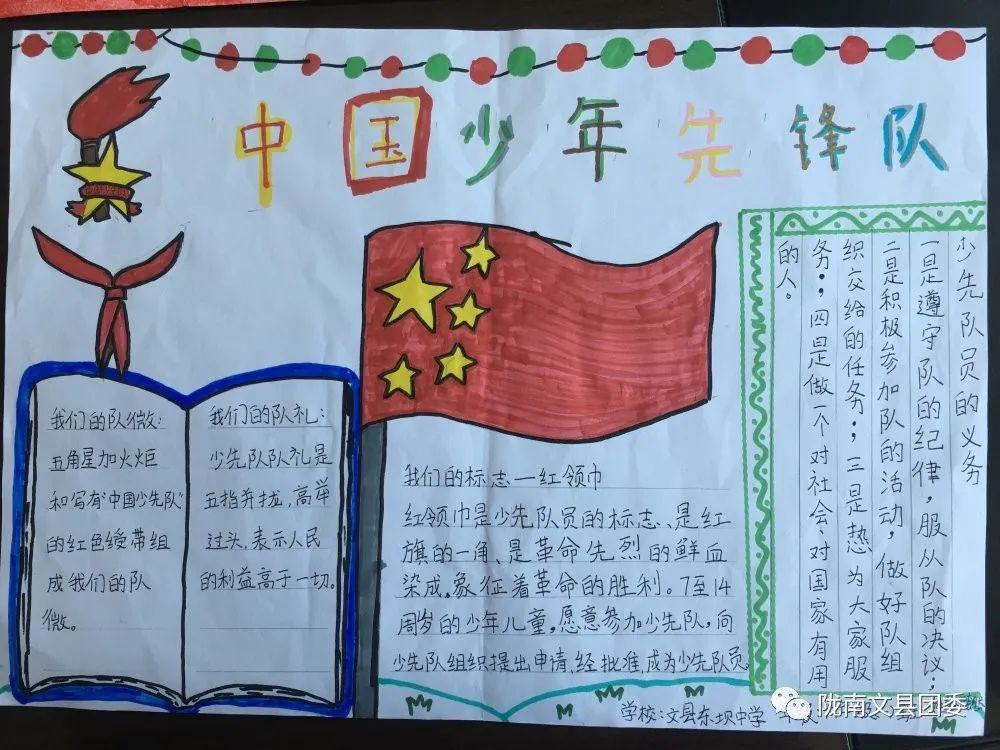 中国少年先锋队
我们的队微:
五角星加火炬
和写有"中国少先队"
的红色绶带组
成我们的队
微。
我们的队礼:
少先队队礼是
五指并拢,高举
过头,表示人民
的利益高于一切。
我们的标志一红领巾
红领巾是少先队员的标志、是红
旗的一角、是革命先烈的鲜血
染成。象征着革命的胜利。7至14
周岁的少年儿童,愿意参加少先队,向
少先队组织提出申请,经批准,成为少先队员
少先队员的义务
一是遵守队的纪律,服从队的决议;
二是积极参加队的活动,做好队组
织交给的任务;三是热为大家服
务;四是做一个对社会、对国家有用
的人。
学校:文县东坝中学
陇南文县团委